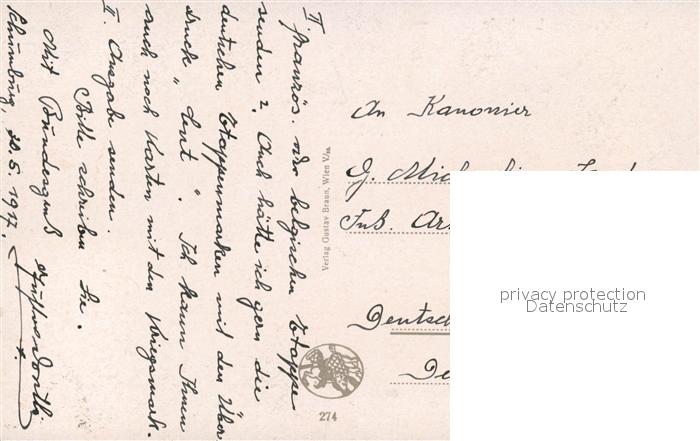 II
französ. oder belgischen Etappe
senden? Auch hätte ich gern die
deutschen Etappenmarken mit den Über
drucke „Cent“. Ich kann Ihnen
auch noch Karten mit den Kriegsmark.
II. Ausgabe senden.
Bitte schreiben Sie.
Mit Bundesgruß
20.5.1917.
Verlag Gustav Braun, Wien V/55.
An Kanonier
G.
Fuß. Ar
Deutsch
De
274
privacy protection
Datenschutz